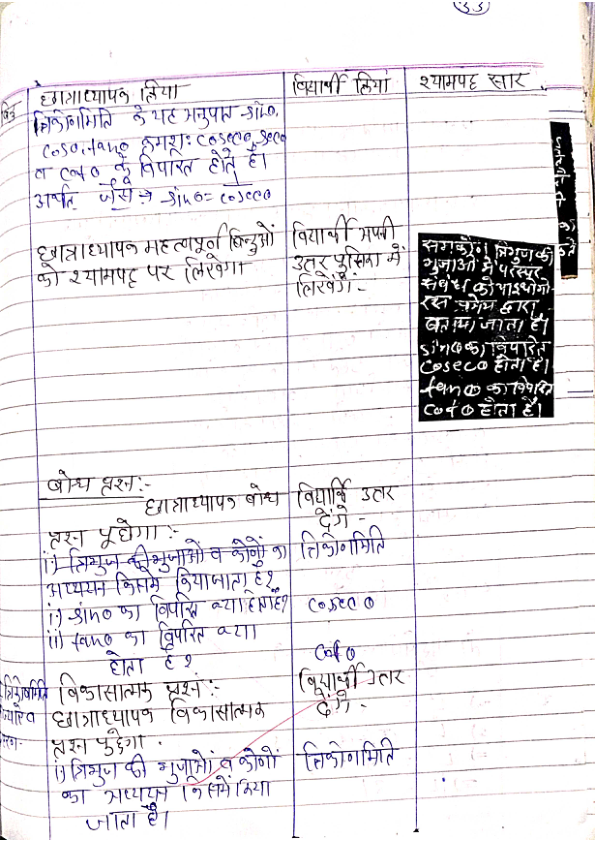 33
छात्राध्यापक क्रिया
विद्यार्थी क्रिया
श्यामपट्ट सार
त्रिकोणमिति के यह अनुपात sinθ,
cosθ, tanθ क्रमशः cosecθ, secθ
व cotθ के विपरित होते है।
अर्थात् जैसे → sinθ = cosecθ
छात्राध्यापक महत्वपूर्ण बिन्दुओं
को श्यामपट्ट पर लिखेगा
विद्यार्थी अपनी
उत्तर पुस्तिका में
लिखेगें -
समकोण त्रिभुज की
भुजाओं में परस्पर
संबंध को पाइथागो-
रस प्रमेय द्वारा
बताया जाता है।
sinθ का विपरित
cosecθ होता है।
tanθ का विपरित
cotθ होता है।
बोध प्रश्न :-
छात्राध्यापक बोध
प्रश्न पूछेगा :-
विद्यार्थी उत्तर
देंगे -
i) त्रिभुज की भुजाओं व कोणों का
अध्ययन किसमें किया जाता है?
त्रिकोणमिति
i) sinθ का विपरित क्या होता है?
cosecθ
ii) tanθ का विपरित क्या
होता है?
cotθ
विकासात्मक प्रश्न :-
छात्राध्यापक विकासात्मक
प्रश्न पुछेगा .
विद्यार्थी उत्तर
देंगे -
i) त्रिभुज की भुजाओं व कोणों
का अध्ययन किसमें किया
जाता है।
त्रिकोणमिति